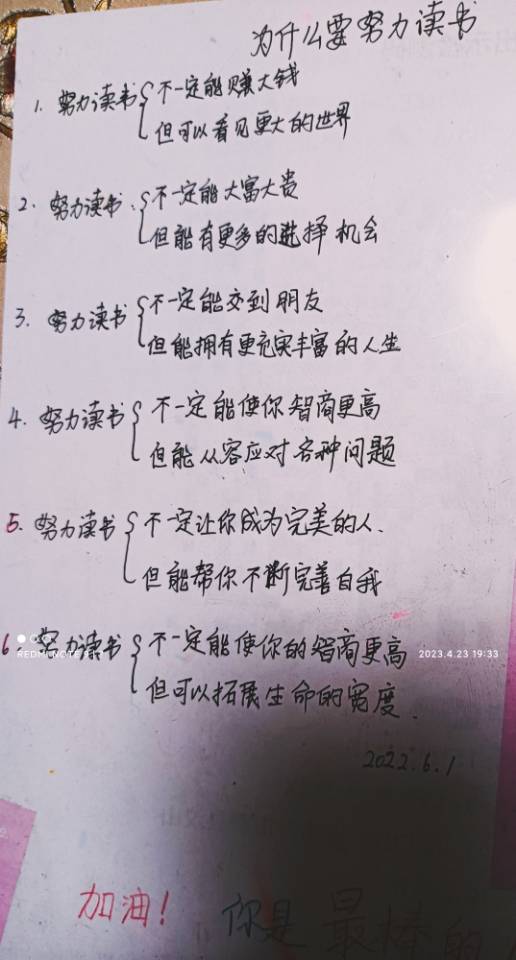 为什么要努力读书
1. 努力读书 { 不一定能赚大钱
但可以看见更大的世界
2. 努力读书 { 不一定能大富大贵
但能有更多的选择机会
3. 努力读书 { 不一定能交到朋友
但能拥有更充实丰富的人生
4. 努力读书 { 不一定能使你智商更高
但能从容应对各种问题
5. 努力读书 { 不一定让你成为完美的人.
但能帮你不断完善自我
6. 努力读书 { 不一定能使你的智商更高
但可以拓展生命的宽度.
REDMI NOTE
2023.4.23 19:33
2022.6.1
加油! 你是最棒的